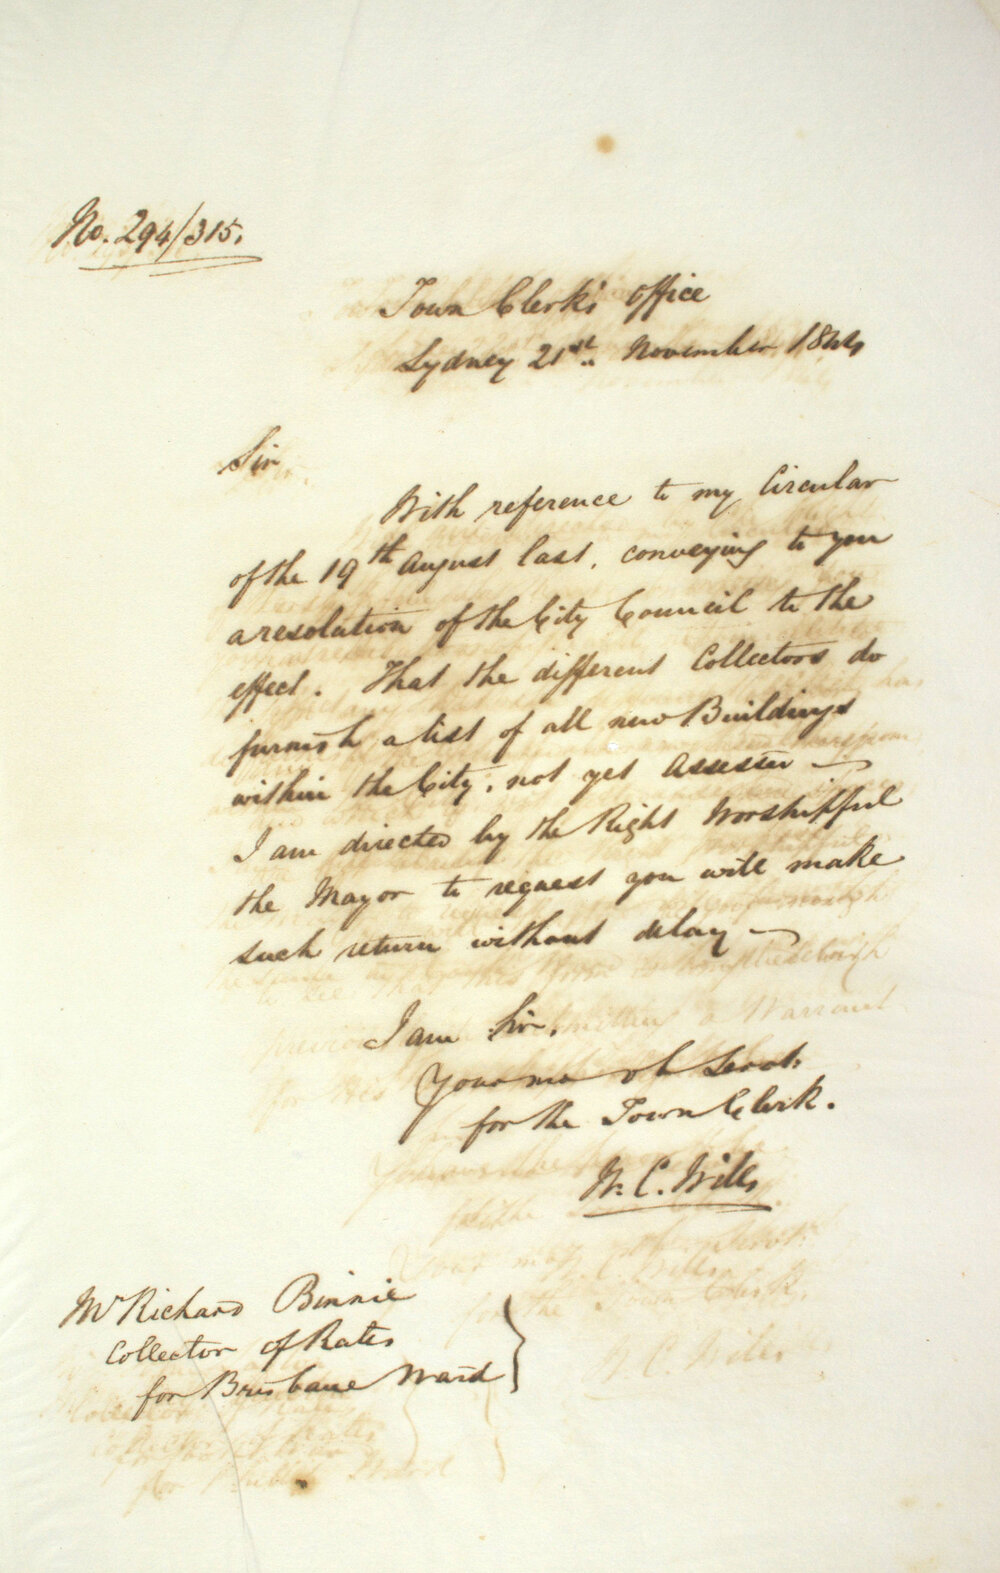 No. 294/315.
Town Clerk's Office
Sydney 21st. November 1844
Sir
With reference to my Circular
of the 19th August last, conveying to you
a resolution of the City Council to the
effect. That the different Collectors do
furnish a list of all new Buildings
within the City, not yet Assessed —
I am directed by the Right Worshipful
the Mayor to request you will make
such return without delay —
I am Sir,
Your mo ob Servt.
for the Town Clerk.
W. C. Wills
Mr Richard Binnie
Collector of Rates
for Brisbane Ward